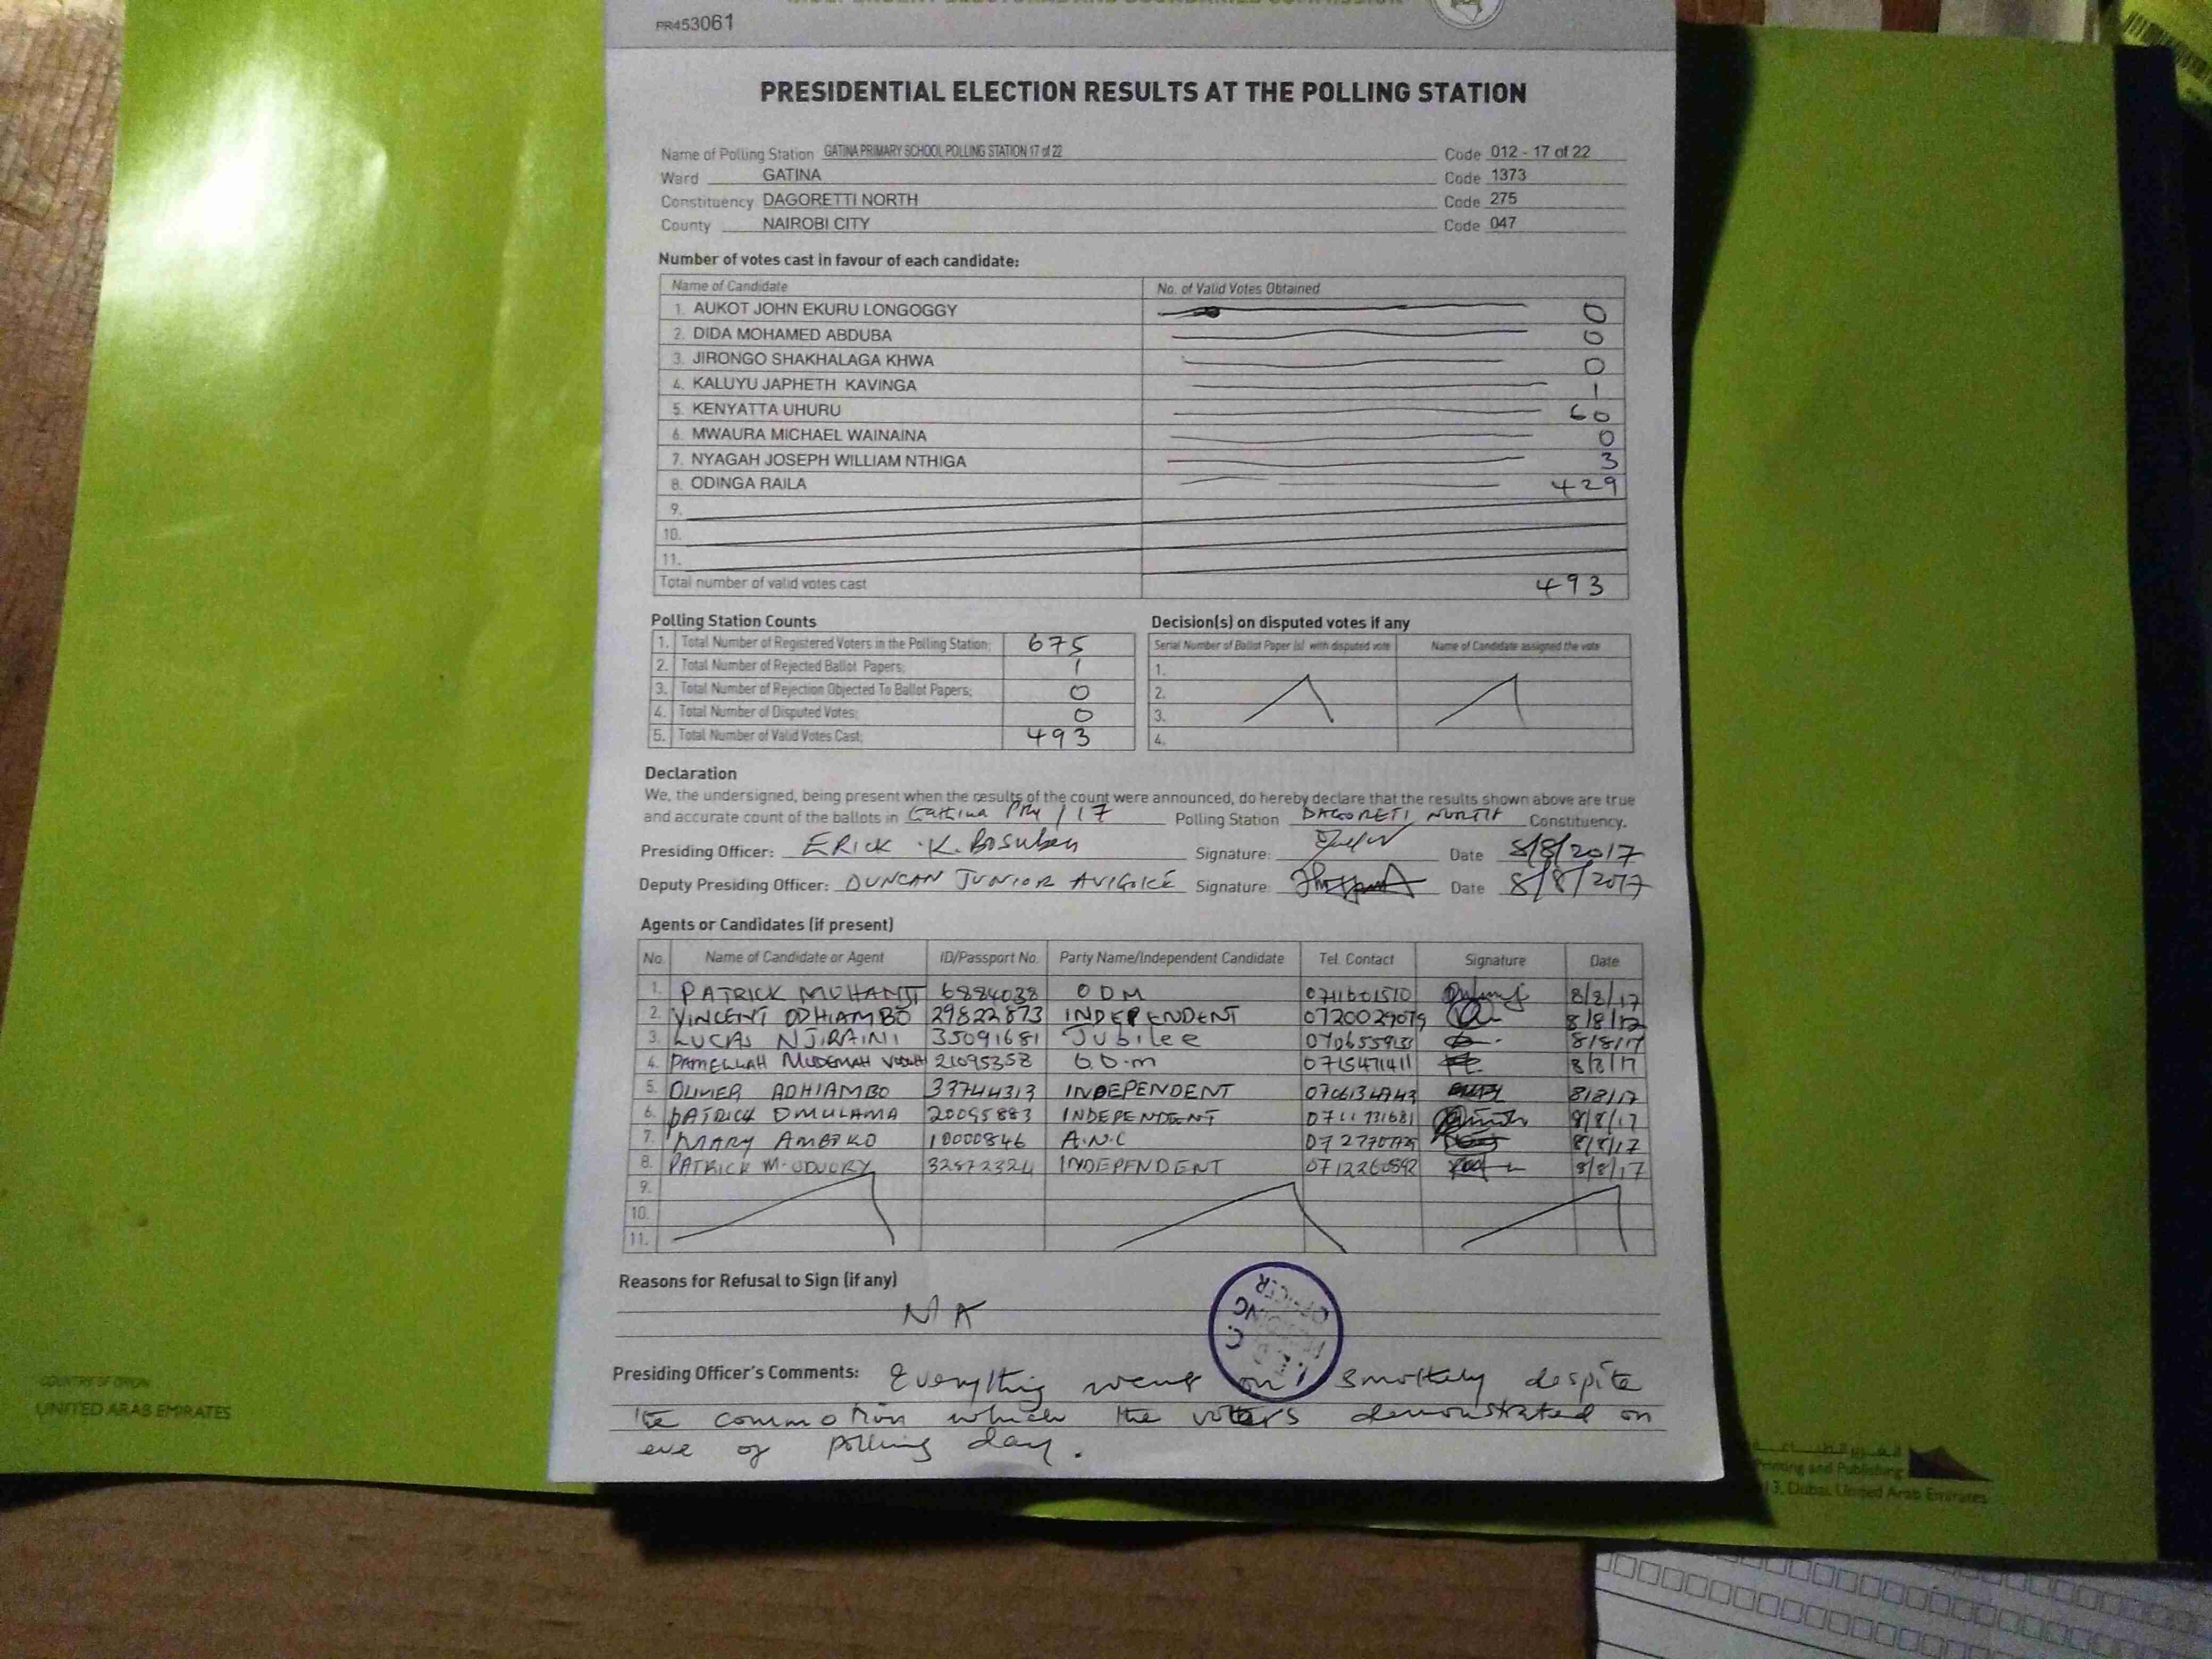 PR453061
PRESIDENTIAL ELECTION RESULTS AT THE POLLING STATION
Name of Polling Station GATINA PRIMARY SCHOOL POLLING STATION 17 of 22 Code 012 - 17 of 22
Ward GATINA Code 1373
Constituency DAGORETTI NORTH Code 275
County NAIROBI CITY Code 047
Number of votes cast in favour of each candidate:
Name of Candidate No. of Valid Votes Obtained
1. AUKOT JOHN EKURU LONGOGGY 0
2. DIDA MOHAMED ABDUBA 0
3. JIRONGO SHAKHALAGA KHWA 0
4. KALUYU JAPHETH KAVINGA 1
5. KENYATTA UHURU 60
6. MWAURA MICHAEL WAINAINA 0
7. NYAGAH JOSEPH WILLIAM NTHIGA 3
8. ODINGA RAILA 429
9.
10.
11.
Total number of valid votes cast 493
Polling Station Counts Decision(s) on disputed votes if any
1. Total Number of Registered Voters in the Polling Station; 675 Serial Number of Ballot Paper (s) with disputed vote Name of Candidate assigned the vote
2. Total Number of Rejected Ballot Papers; 1 1.
3. Total Number of Rejection Objected To Ballot Papers; 0 2.
4. Total Number of Disputed Votes; 0 3.
5. Total Number of Valid Votes Cast; 493 4.
Declaration
We, the undersigned, being present when the results of the count were announced, do hereby declare that the results shown above are true
and accurate count of the ballots in Gathina Pry / 17 Polling Station DAGORETI NORTH Constituency.
Presiding Officer: ERICK .K. Signature: Date 8/8/2017
Deputy Presiding Officer: DUNCAN JUNIOR Signature: Date 8/8/2017
Agents or Candidates (if present)
No. Name of Candidate or Agent ID/Passport No. Party Name/Independent Candidate Tel. Contact Signature Date
1. PATRICK MUHANJI 6884038 ODM 0711601510 8/8/17
2. VINCENT ODHIAMBO 29822873 INDEPENDENT 0720029079 8/8/17
3. LUCAS NJIRAINI 35091681 Jubilee 8/8/17
4. PAMELLAH 21095358 O.D.M 0715471411 8/8/17
5. OLIVIER ADHIAMBO 33744313 INDEPENDENT 8/8/17
6. PATRICK OMULAMA 20095883 INDEPENDENT 0711731681 8/8/17
7. MARY 10000846 A.N.C 8/8/17
8. PATRICK M. INDEPENDENT 0712260892 8/8/17
9.
10.
11.
Reasons for Refusal to Sign (if any)
N/A
PRESIDING OFFICER
Presiding Officer's Comments: Everything went on smothely despite
the commotion which the voters demonstrated on
eve of polling day.
COUNTRY OF ORIGIN
UNITED ARAB EMIRATES
Printing and Publishing
Dubai, United Arab Emirates